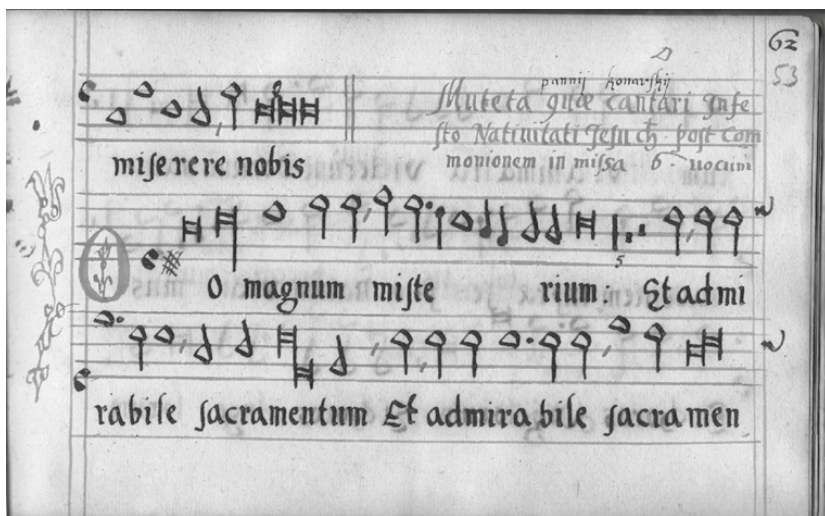 62
53
pannij konarskij
Muteta quae cantari Infe
sto Nativitati Jesu ch. post Com
monionem in missa 6 uocum
miserere nobis
O magnum miste rium: Et admi
rabile sacramentum Et admirabile sacramen